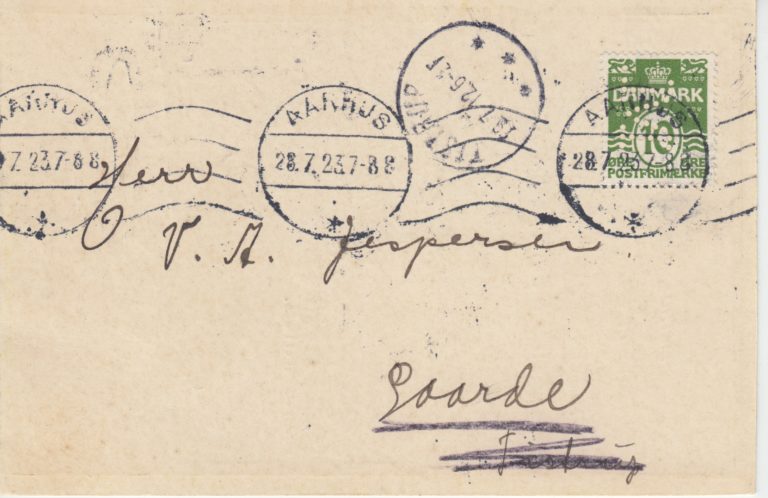 AARHUS
7. 23.7-8 8
AARHUS
28.7.23.7-8 8
TISTRUP
AARHUS
28.7.23.7-8 8
DANMARK
10
ØRE ØRE
POSTFRIMÆRKE
Herr
V. A. Jespersen
Gaarde
Tistrup